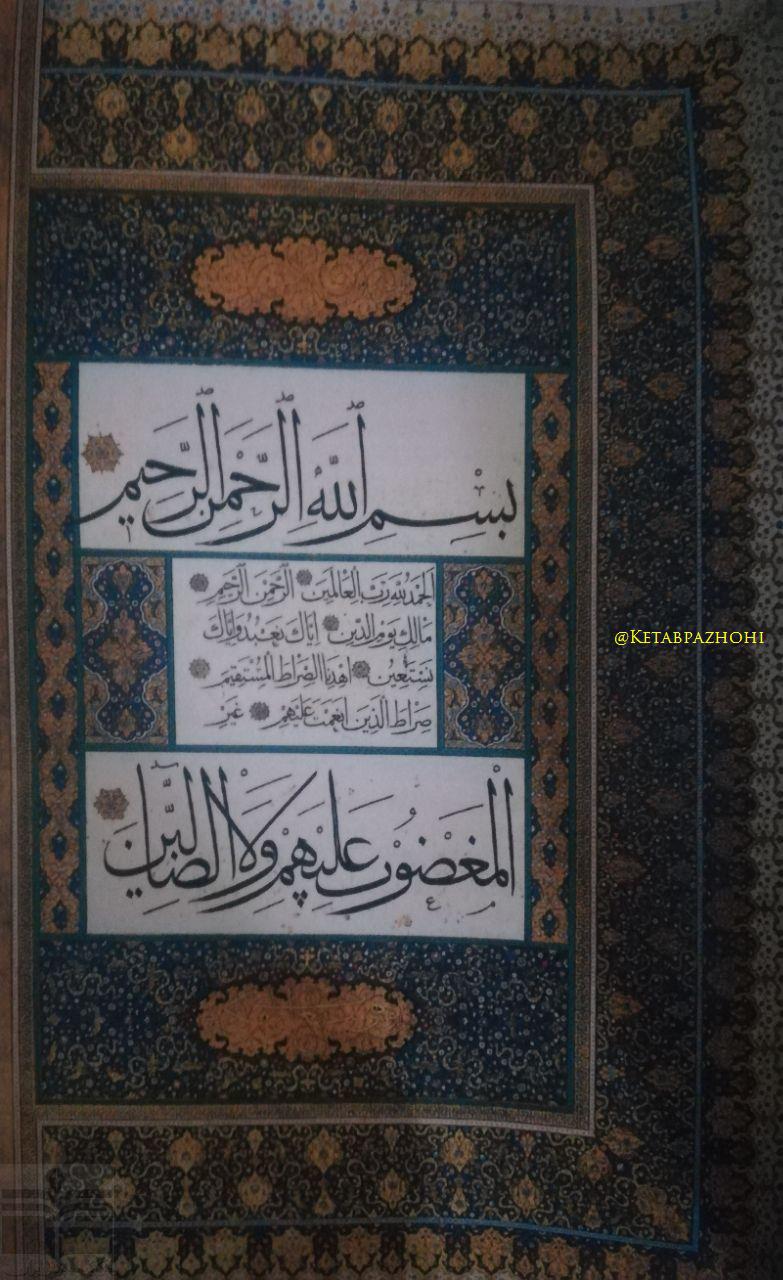 بِسْمِ اللَّهِ الرَّحْمَنِ الرَّحِيمِ
الحَمدُ لِلّهِ رَبِّ العالَمينَ الرَّحمنِ الرَّحيمِ
مالِكِ يَومِ الدّينِ اِيّاكَ نَعبُدُ وَاِيّاكَ
نَستَعينُ اِهدِنَا الصِّراطَ المُستَقيمَ
صِراطَ الَّذينَ اَنعَمتَ عَلَيهِم غَيرِ
الْمَغْضُوبِ عَلَيْهِمْ وَلَا الضَّالِّينَ
@KETABPAZHOHI